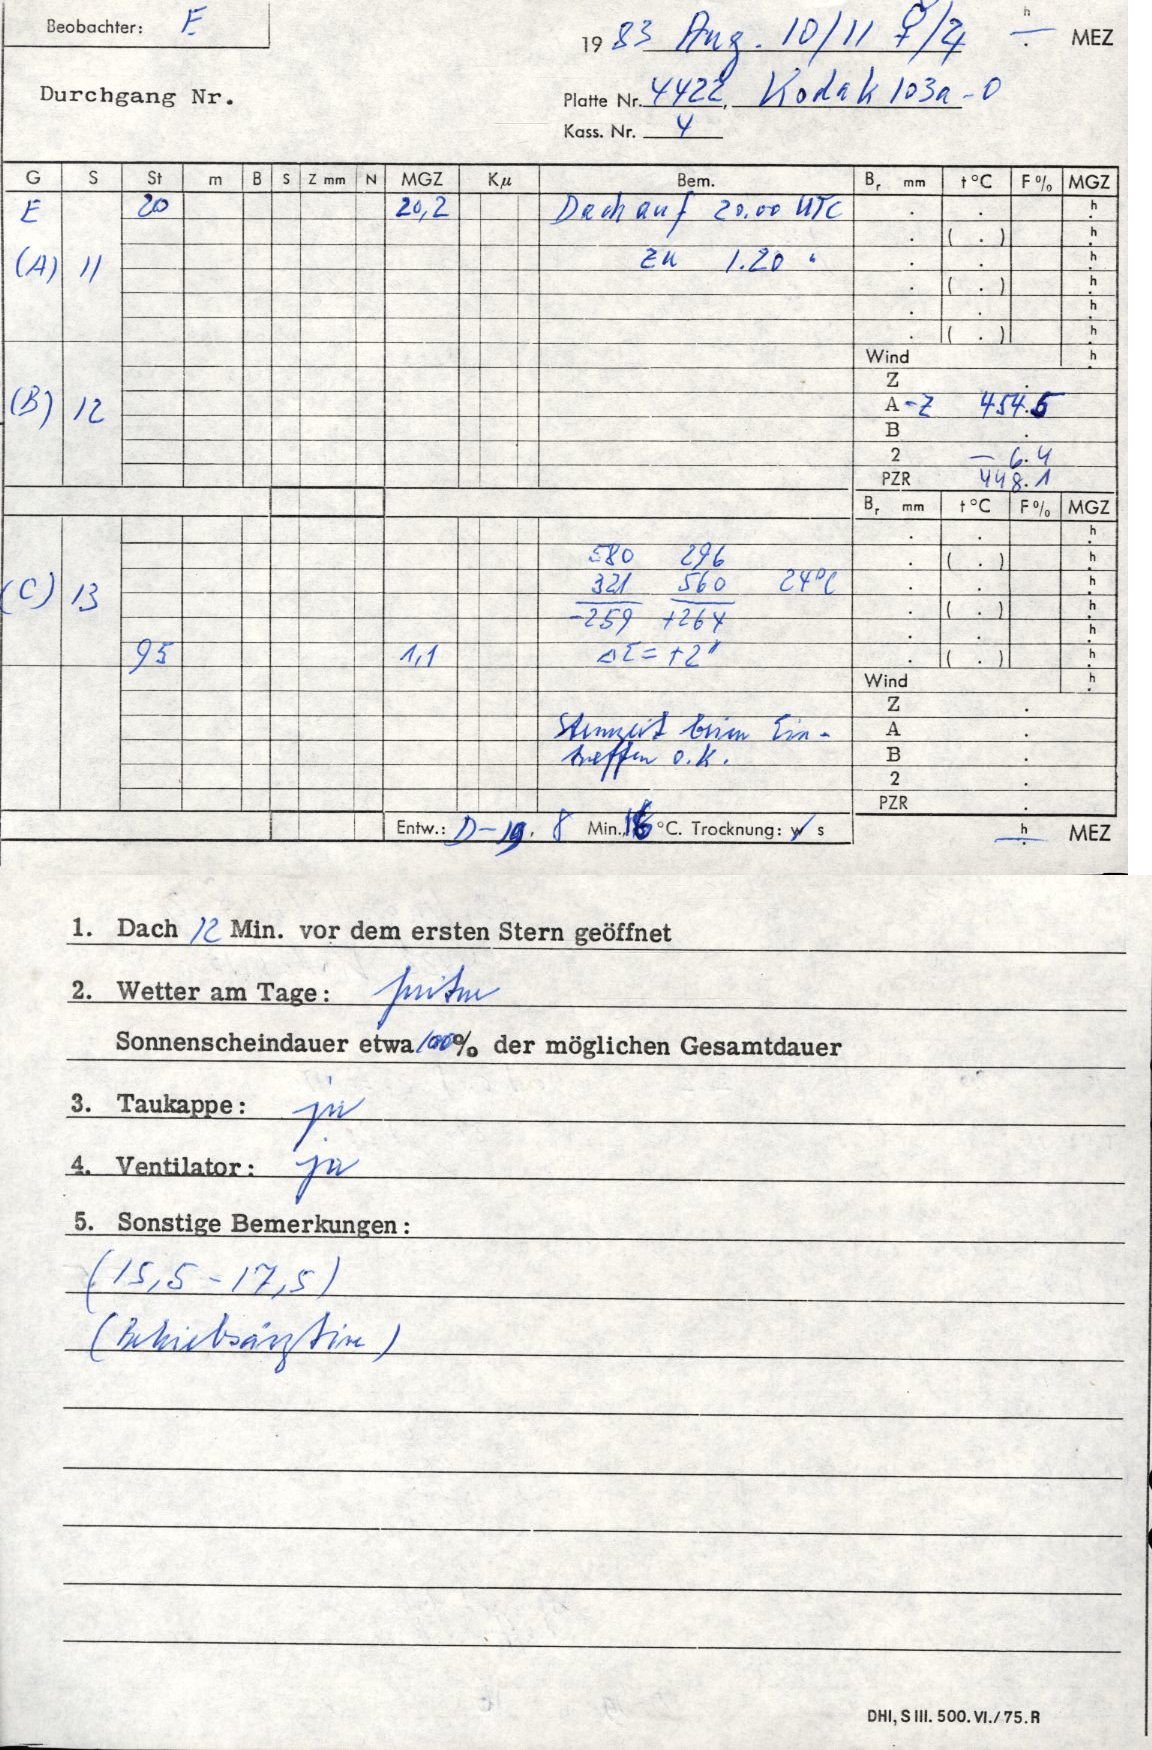 Beobachter: E
19 83 Aug. 10/11 ☿/♃ —.h MEZ
Durchgang Nr.
Platte Nr. 4422, Kodak 103a-O
Kass. Nr. 4
G S St m B S Z mm N MGZ Kµ Bem. Br mm t °C F % MGZ
E 20 20,2 Dach auf 20.00 UTC . . h
. ( . ) h
(A) 11 zu 1.20 " . . h
. ( . ) h
. . h
. ( . ) h
Wind h
Z .
(B) 12 A -Z 454.5
B .
2 – 6.4
PZR 448.1
Br mm t °C F % MGZ
. . h
580 296 . ( . ) h
(C) 13 321 560 24°C . . h
-259 +264 . ( . ) h
. . h
95 1,1 ΔΣ = +2" . ( . ) h
Wind h
Z .
Sternzeit beim Ein- A .
treffen o.k. B .
2 .
PZR .
Entw.: D-19, 8 Min., 18 °C. Trocknung: w s —.h MEZ
1. Dach 12 Min. vor dem ersten Stern geöffnet
2. Wetter am Tage: heiter
Sonnenscheindauer etwa 100% der möglichen Gesamtdauer
3. Taukappe: ja
4. Ventilator: ja
5. Sonstige Bemerkungen:
(15,5 - 17,5)
(Betriebsärztin)
DHI, S III. 500. VI./75. R